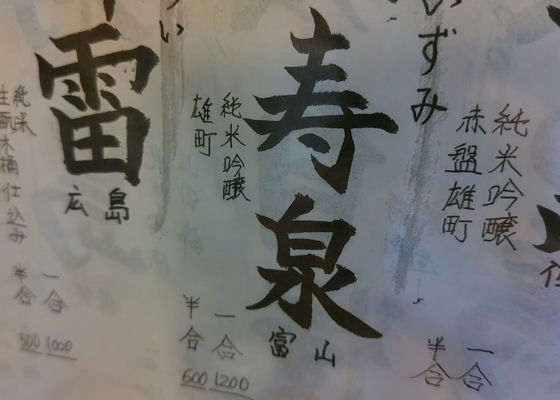 純米吟醸
赤盤雄町
一合
半合
いずみ
寿泉
富山
純米吟醸
雄町
一合 1200
半合 600
い
雷
広島
純米
生酛木桶仕込み
一合 1000
半合 500